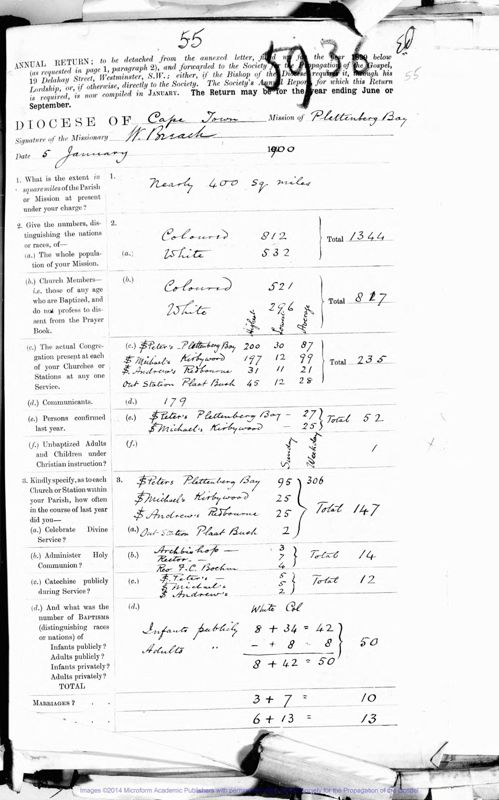 55
5936
Ed
55
ANNUAL RETURN; to be detached from the annexed letter, filled up for the year 1899 below
(as requested in page 1, paragraph 2), and forwarded to the Society for the Propagation of the Gospel,
19 Delahay Street, Westminster, S.W.; either, if the Bishop of the Diocese require it, through his
Lordship, or, if otherwise, directly to the Society. The Society's Annual Report, for which this Return
is required, is now compiled in JANUARY. The Return may be for the year ending June or
September.
DIOCESE OF Cape Town Mission of Plettenberg Bay
Signature of the Missionary W. Breach
Date 5 January 1900
1. What is the extent in square miles of the Parish or Mission at present under your charge?
1. Nearly 400 Sq. miles
2. Give the numbers, distinguishing the nations or races, of—
2.
(a.) The whole population of your Mission.
(a.) Coloured 812
White 532
Total 1344
(b.) Church Members—i.e. those of any age who are Baptized, and do not profess to dissent from the Prayer Book.
(b.) Coloured 521
White 296
Total 817
Highest Lowest Average
(c.) The actual Congregation present at each of your Churches or Stations at any one Service.
(c.) St Peter's Plettenberg Bay 200 30 87
St Michael's Kirbywood 197 12 99
St Andrew's Redbourne 31 11 21
Out Station Plaat Bush 45 12 28
Total 235
(d.) Communicants.
(d.) 179
(e.) Persons confirmed last year.
(e.) St Peter's Plettenberg Bay - 27
St Michael's Kirbywood - 25
Total 52
(f.) Unbaptized Adults and Children under Christian instruction?
(f.) 1
Sunday Weekday
3. Kindly specify, as to each Church or Station within your Parish, how often in the course of last year did you—
(a.) Celebrate Divine Service?
3. St Peters Plettenberg Bay 95 306
St Michaels Kirbywood 25
St Andrews Redbourne 25
(a.) Out Station Plaat Bush 2
Total 147
(b.) Administer Holy Communion?
(b.) Archbishop — 3
Rector — 7
Rev 4
Total 14
(c.) Catechise publicly during Service?
(c.) St Peter's — 5
St Michael's 5
St Andrew's 2
Total 12
(d.) And what was the number of BAPTISMS (distinguishing races or nations) of
Infants publicly?
Adults publicly?
Infants privately?
Adults privately?
TOTAL
(d.) White Col
Infants publicly 8 + 34 = 42
Adults " - + 8 - 8
8 + 42 = 50
50
MARRIAGES?
3 + 7 = 10
6 + 13 = 13
Images ©2014 Microform Academic Publishers with permission of the United Society for the Propagation of the Gospel